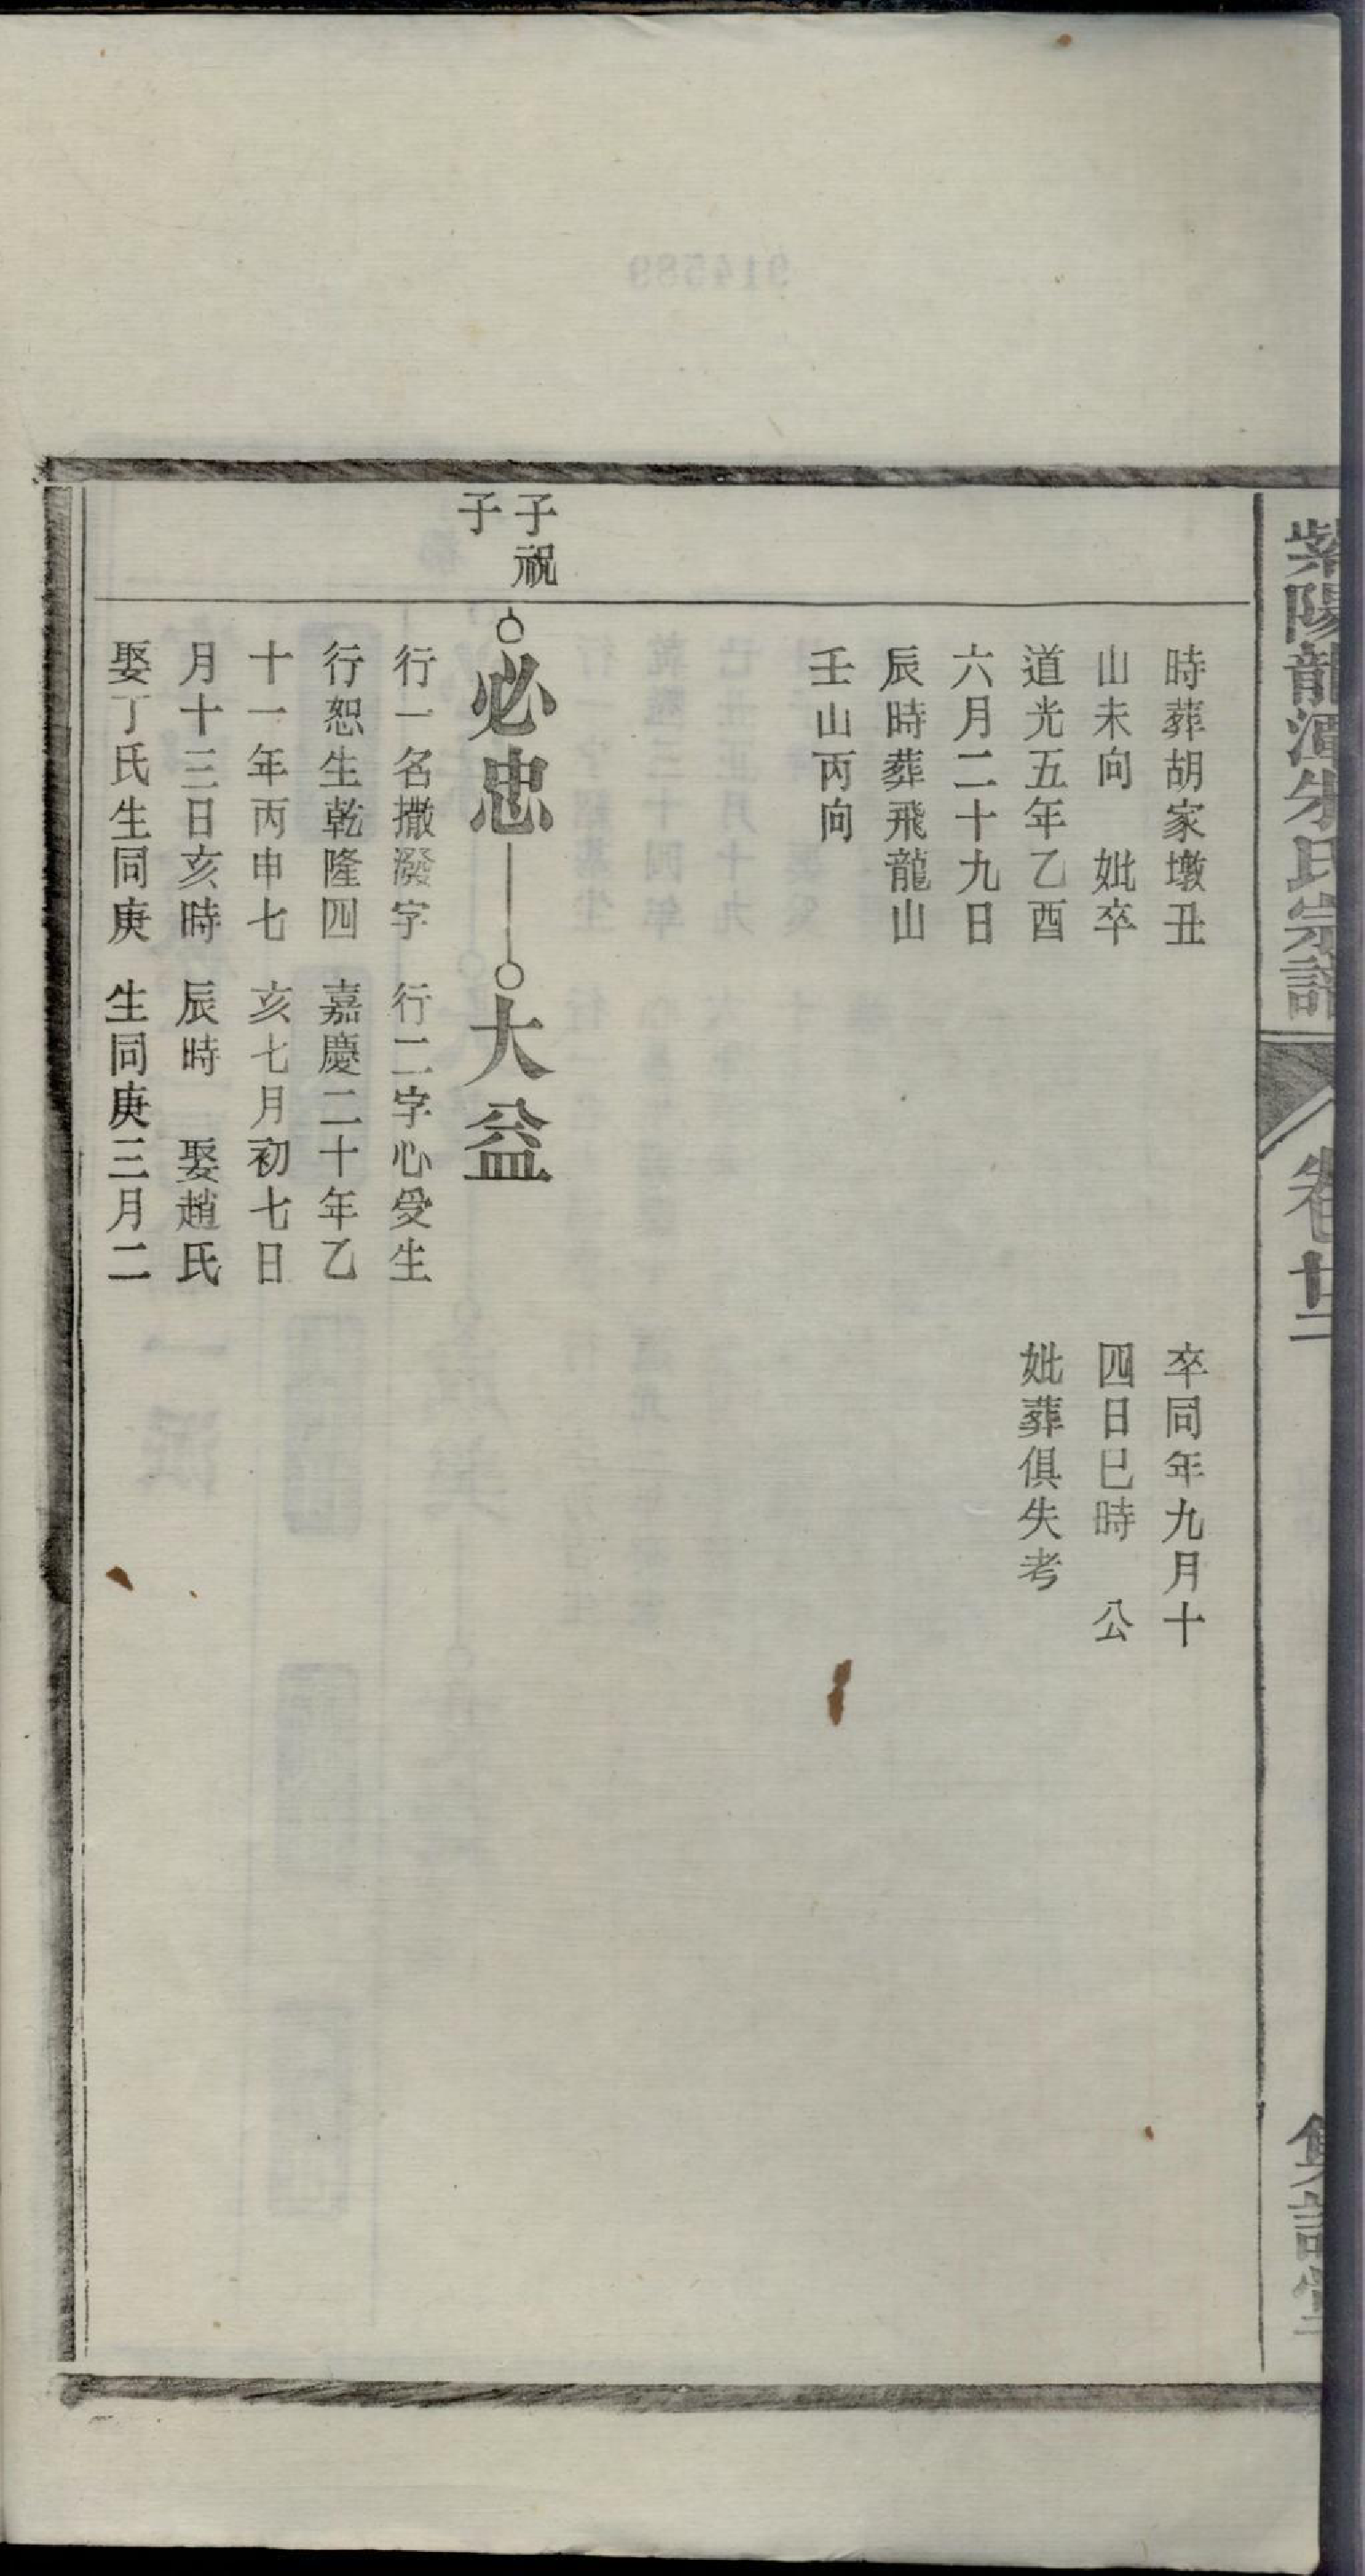 紫陽龍潭朱氏宗譜
卷廿二
時葬胡家墩丑
山未向　妣卒
道光五年乙酉
六月二十九日
辰時葬飛龍山
壬山丙向
卒同年九月十
四日巳時　公
妣葬俱失考
子祝
子
必忠
行一名撒潑字
行恕生乾隆四
十一年丙申七
月十三日亥時
娶丁氏生同庚
大益
行二字心受生
嘉慶二十年乙
亥七月初七日
辰時　娶趙氏
生同庚三月二